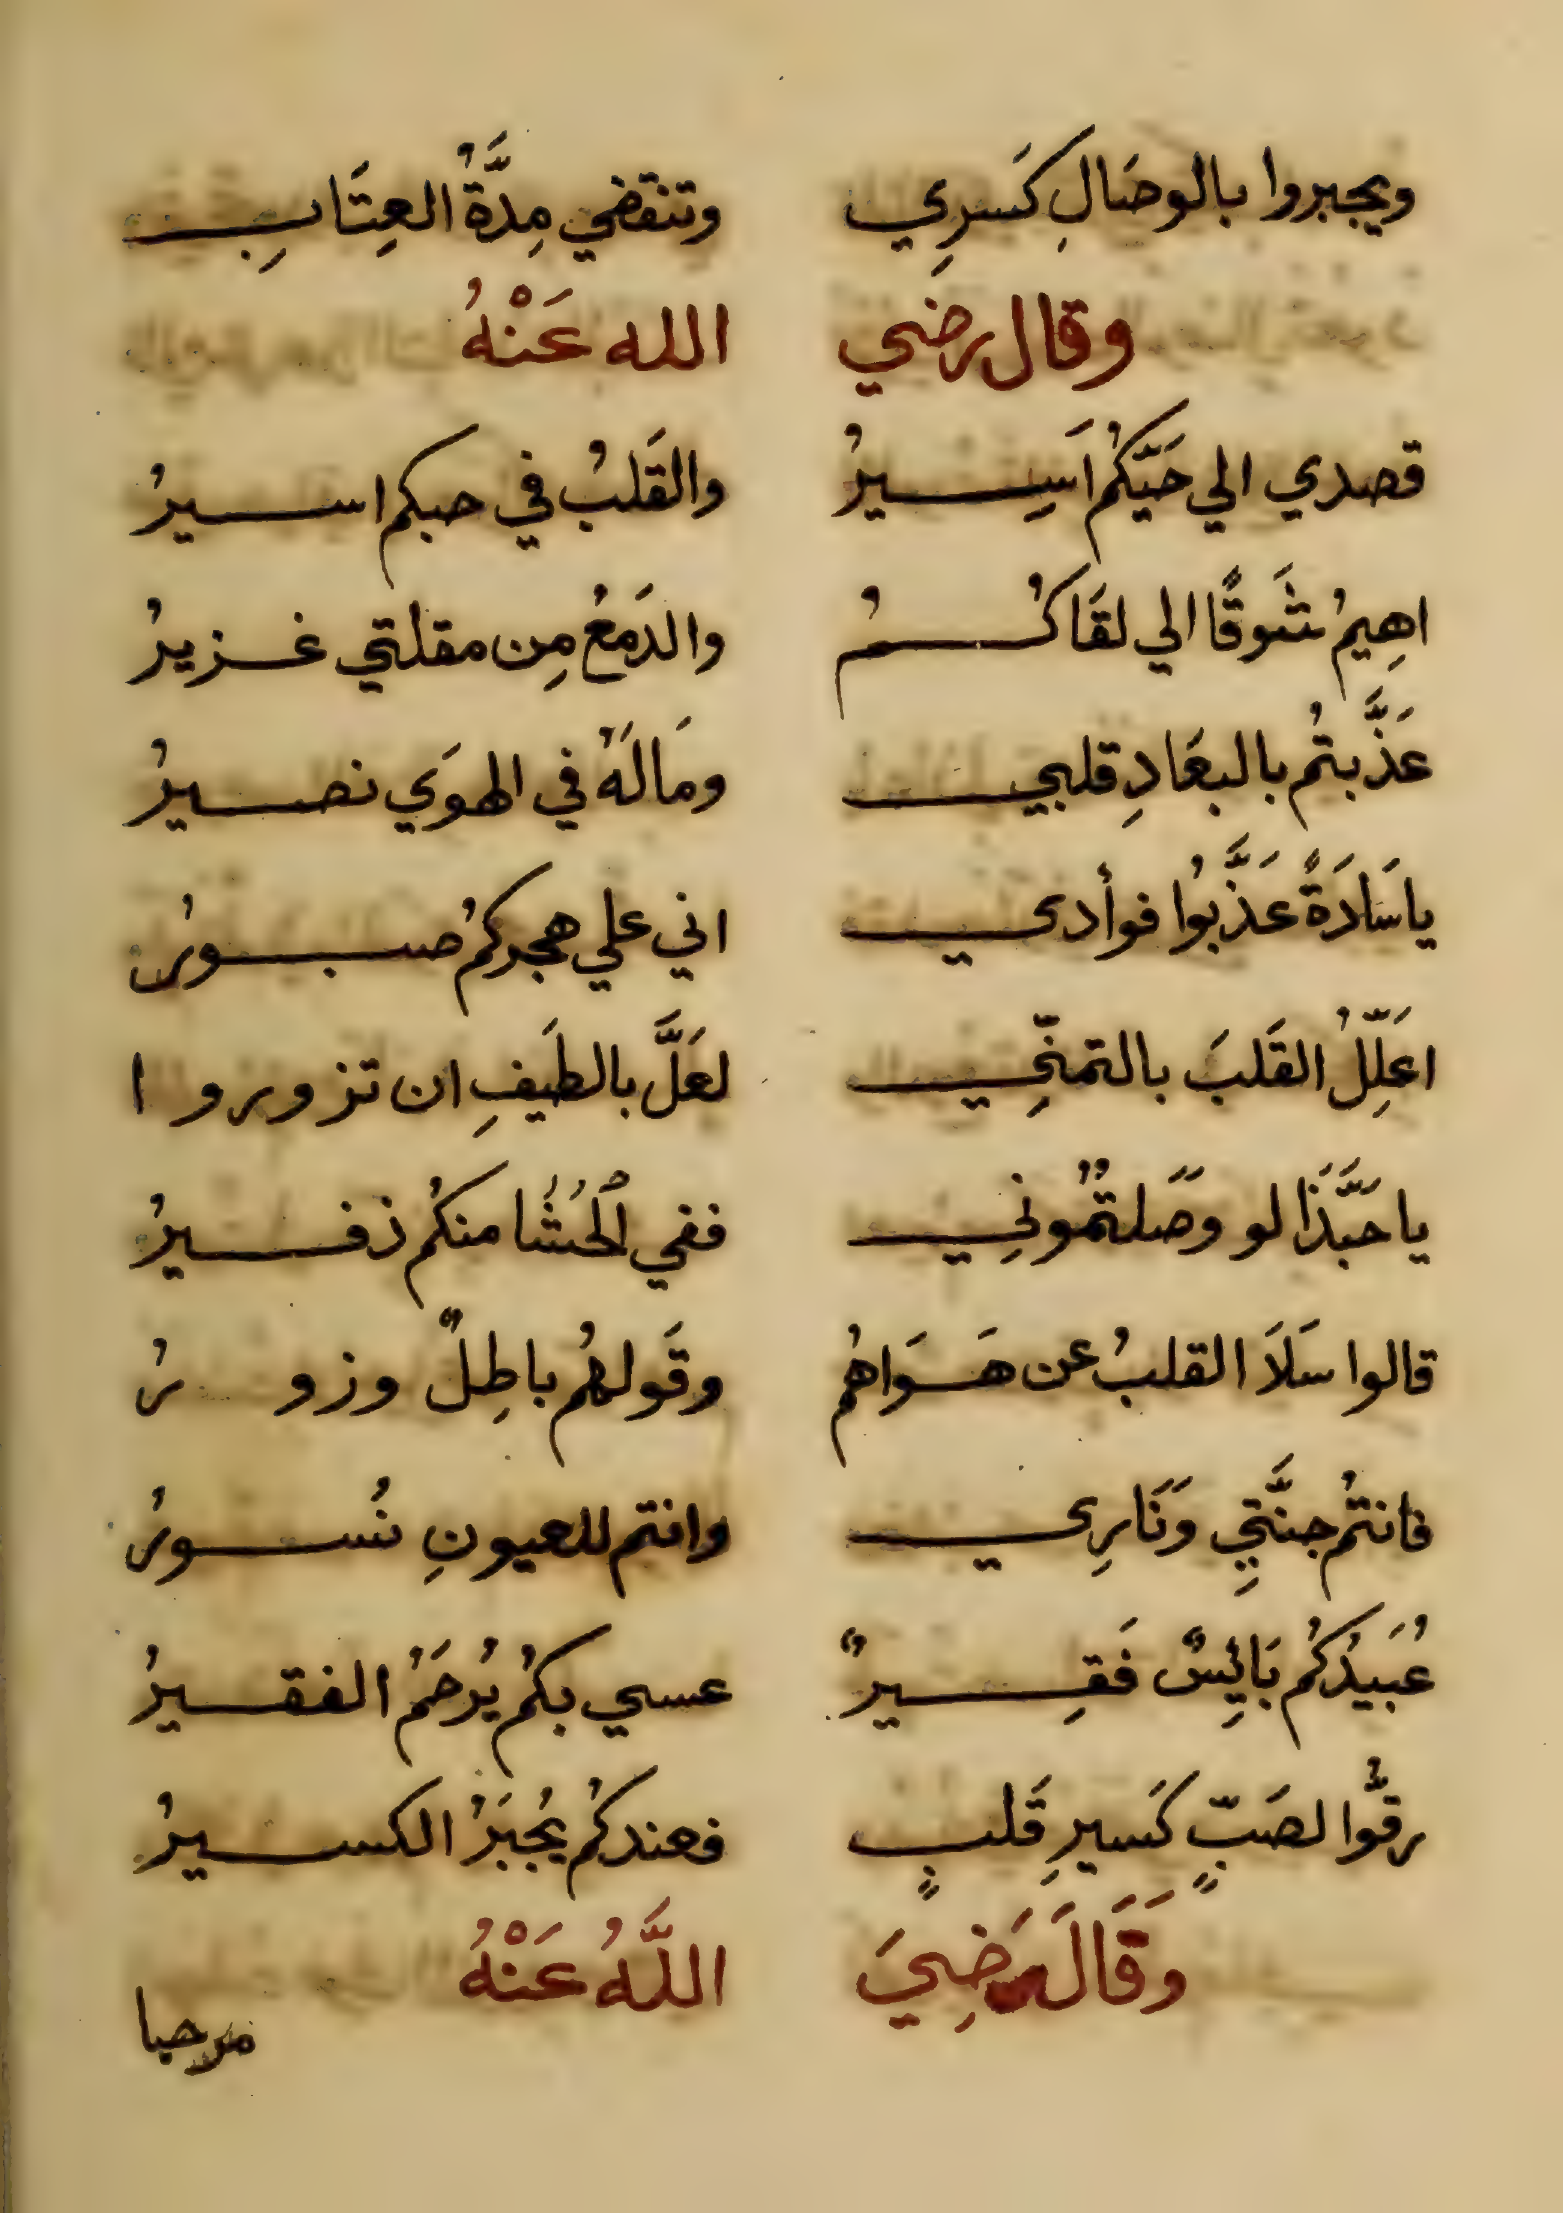 ويجبروا بالوصَالِ كَسرِي وتنقضي مِدَّةُ العِتَابِ
وقال رضي الله عَنْهُ
قصدي الي حَيّكُم اَسِيرُ والقَلبُ في حبكم اسيرُ
اهِيمُ شَوقًا الي لقَاكُم والدَمعُ مِن مقلتي غزيرُ
عَذَّبتُم بالبعَادِ قلبي ومَا لَهُ في الهوَي نصيرُ
يا سَادَةً عَذَّبُوا فوأدي اني علي هجركُم صبورُ
اعَلِّلُ القَلبَ بالتمنِّي لعَلَّ بالطَيفِ ان تزوروا
يا حَبَّذَا لو وصَلتُمُوني ففي الحُشَا منكُم زفيرُ
قالوا سَلَا القلبُ عن هَوَاهُم وقَولهُم باطِلٌ وزورُ
فانتُم جنَّتِي وَنَارِي وانتم للعيونِ نُورُ
عُبَيدُكُم بَائِسٌ فَقِيرٌ عسي بكُم يُرحَمُ الفقيرُ
رقُّوا لصَبٍّ كَسيرِ قَلبٍ فعندكُم يُجبَرُ الكسيرُ
وَقَالَ رَضِيَ اللَّهُ عَنْهُ
مرحبا